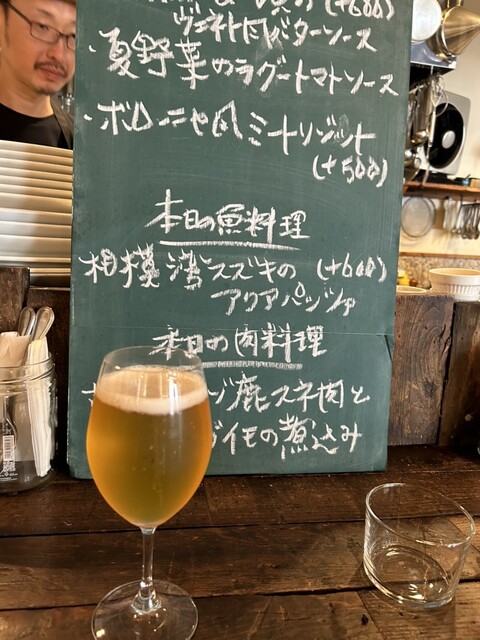 (+600)
ヴェネト風バターソース
・夏野菜のラグートマトソース
・ボロニャ風ミートリゾット
(+500)
本日の魚料理
相模湾スズキの (+600)
アクアパッツァ
本日の肉料理
ゾ鹿スネ肉と
イモの煮込み